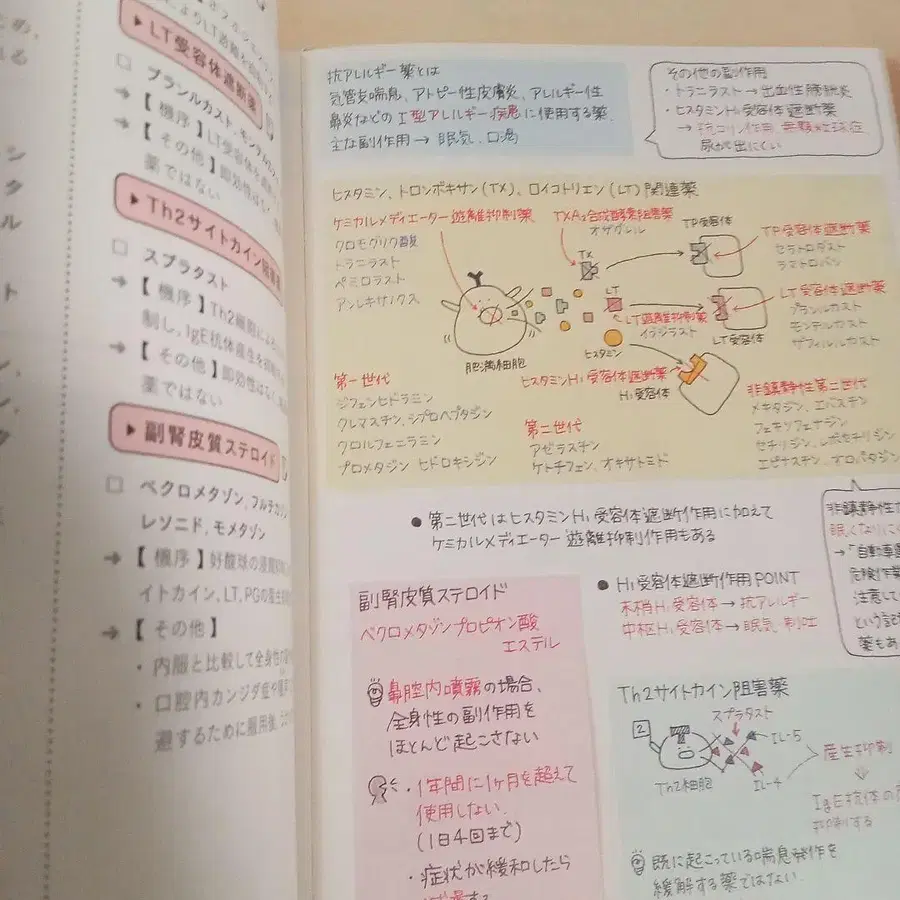 LT受容体遮断薬
□ プランルカスト、モンテルカスト
→【 機序 】LT受容体を
→【 その他 】即効性は
薬ではない
Th2サイトカイン阻害薬
□ スプラタスト
→【 機序 】Th2細胞による
制し、IgE抗体産生を
→【 その他 】即効性は
薬ではない
副腎皮質ステロイド
□ ベクロメタゾン、フルチカゾン
レソニド、モメタゾン
→【 機序 】好酸球の浸潤
イトカイン、LT、PGの産生
→【 その他 】
・内服と比較して全身性
・口腔内カンジダ症や
避するために服用後、
抗アレルギー薬とは
気管支喘息、アトピー性皮膚炎、アレルギー性
鼻炎などのⅠ型アレルギー疾患に使用する薬
主な副作用→眠気、口渇
その他の副作用
・トラニラスト→出血性膀胱炎
・ヒスタミンH₁受容体遮断薬
→抗コリン作用、無顆粒球症、
尿が出にくい
ヒスタミン、トロンボキサン(TX)、ロイコトリエン(LT)関連薬
ケミカルメディエーター遊離抑制薬
クロモグリク酸
トラニラスト
ペミロラスト
アンレキサノクス
TXA₂合成酵素阻害薬
オザグレル
TX
TP受容体
TP受容体遮断薬
セラトロダスト
ラマトロバン
LT
LT遊離抑制薬
イブジラスト
LT受容体
LT受容体遮断薬
プランルカスト
モンテルカスト
ザフィルルカスト
肥満細胞
ヒスタミン
ヒスタミンH₁受容体遮断薬
H₁受容体
第一世代
ジフェンヒドラミン
クレマスチン、シプロヘプタジン
クロルフェニラミン
プロメタジン ヒドロキシジン
第二世代
アゼラスチン
ケトチフェン、オキサトミド
非鎮静性第二世代
メキタジン、エバスチン
フェキソフェナジン
セチリジン、レボセチリジン
エピナスチン、オロパタジン
● 第二世代はヒスタミンH₁受容体遮断作用に加えて
ケミカルメディエーター遊離抑制作用もある
● H₁受容体遮断作用POINT
末梢H₁受容体→抗アレルギー
中枢H₁受容体→眠気・制吐
非鎮静性
眠くなりにく
→「自動車運
危険作業
注意して
という記
薬もあ
副腎皮質ステロイド
ベクロメタゾンプロピオン酸
エステル
鼻腔内噴霧の場合、
全身性の副作用を
ほとんど起こさない
・1年間に1ヶ月を超えて
使用しない
(1日4回まで)
・症状が緩和したら
Th2サイトカイン阻害薬
スプラタスト
2
Th2細胞
IL-5
IL-4
産生抑制
⇩
IgE抗体の
抑制する
既に起こっている喘息発作を
緩解する薬ではない